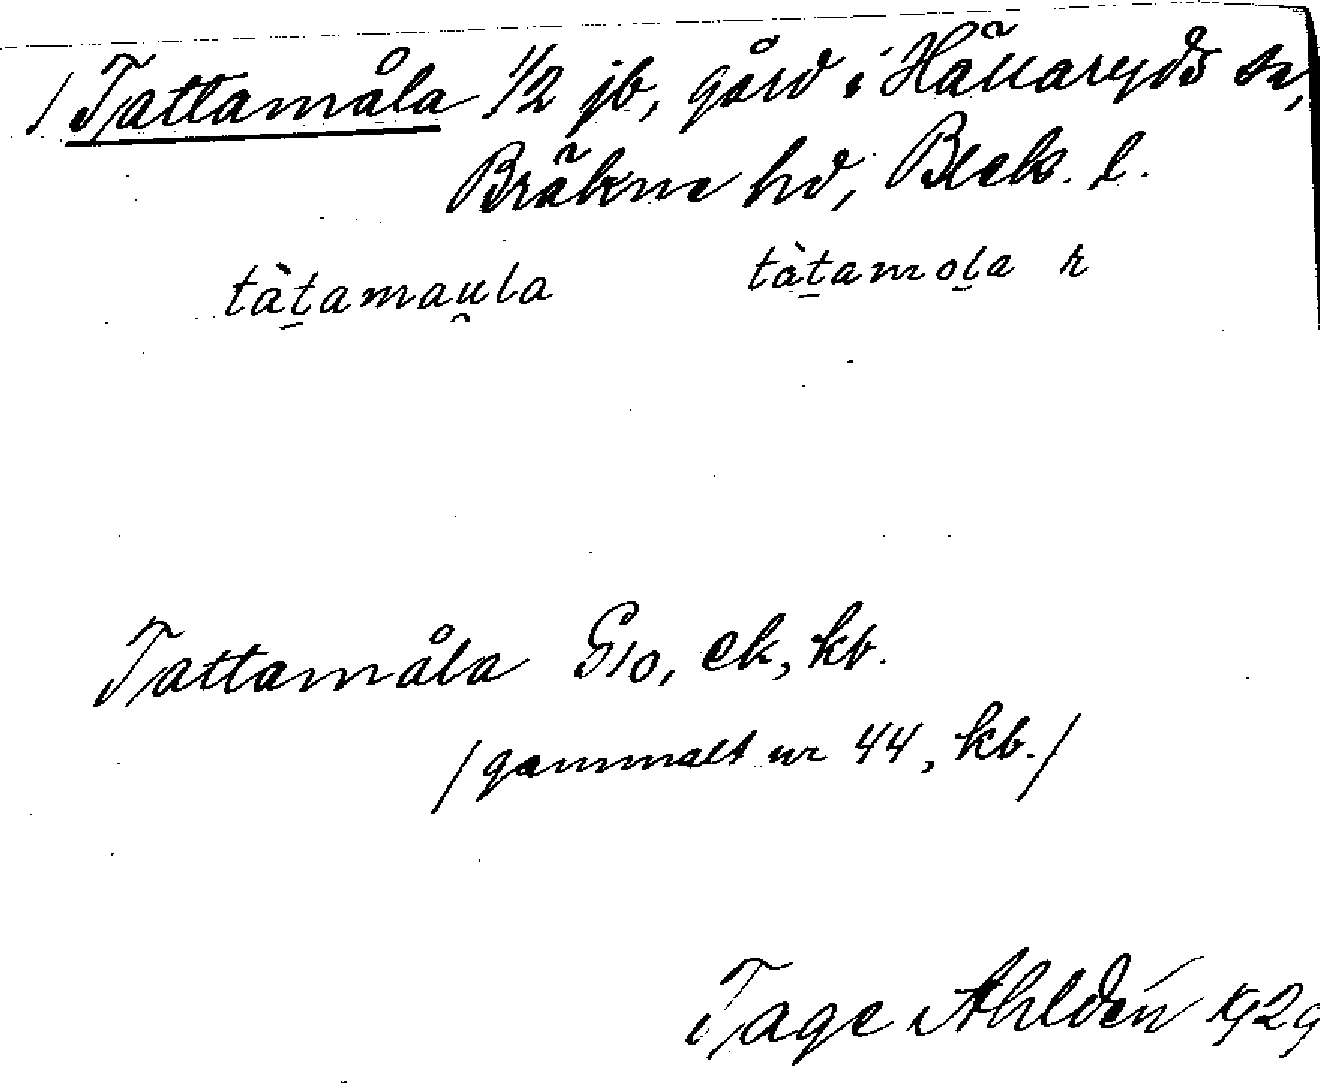 / Tattamåla 1/2 jb, gård i Hällaryds sn,
Bräkne hd, Blek. l.
tàt̠amau̯la tàt̠amo̠la r
Tattamåla G10, ek, kb.
/gammalt nr 44, kb./
Tage Ahldén 1929